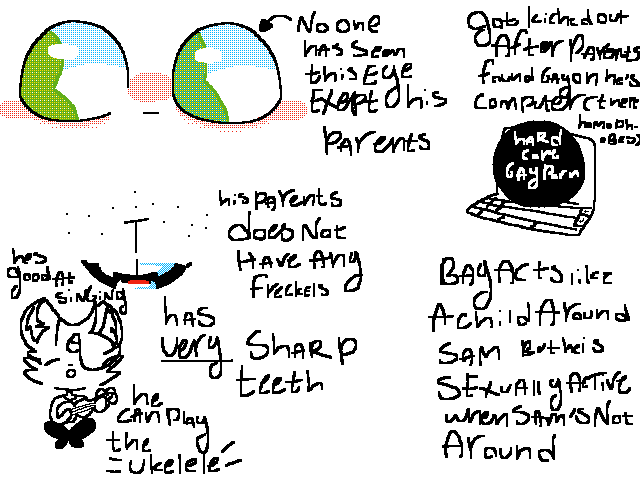 No one
has seen
this EYE
EXEPT his
PARENTS
gots kicked out
After PARENTS
found Gay on he's
computer (there
homoph-
obes)
hARD
core
GAY Porn
his PARENTS
does Not
HAVE ANy
freckels
hes
good At
SiNGiNG
hAS
very SHARP
teeth
he
CAN play
the
ukelele
BAy Acts like
A child Around
SAM But he is
SEXUAlly ActIVE
when SAM'S Not
Around